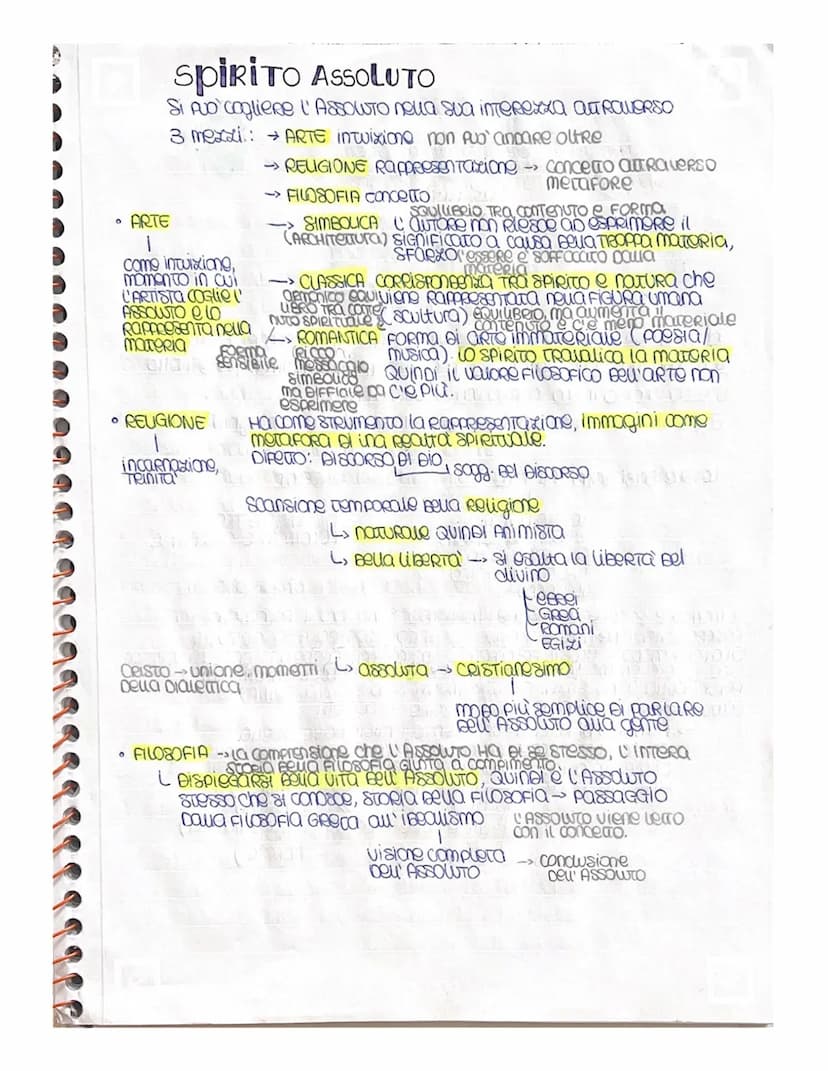 SPIRITO ASSOLUTO
SI PUO' COGLIERE L'ASSOLUTO NELLA SUA INTEREZZA ATTRAVERSO
3 MEZZI: → ARTE INTUIZIONE NON PUO' ANDARE OLTRE
→ RELIGIONE RAPPRESENTAZIONE → CONCETTO ATTRAVERSO
METAFORE
→ FILOSOFIA CONCETTO
SQUILIBRIO TRA CONTENUTO E FORMA
• ARTE → SIMBOLICA L'AUTORE NON RIESCE AD ESPRIMERE IL
(ARCHITETTURA) SIGNIFICATO A CAUSA DELLA TROPPA MATERIA,
SFARZO L'ESSERE E' SOFFOCATO DALLA
MATERIA
COME INTUIZIONE,
MOMENTO IN CUI
L'ARTISTA COGLIE L'
ASSOLUTO E LO
RAPPRESENTA NELLA
MATERIA
FORMA
SENSIBILE
→ CLASSICA CORRISPONDENZA TRA SPIRITO E NATURA CHE
VIENE RAPPRESENTATA NELLA FIGURA UMANA
(SCULTURA) EQUILIBRIO, MA AUMENTA IL
CONTENUTO E C'E' MENO MATERIALE
ARMONICO EQUI
LIBRO TRA CONTE
NUTO SPIRITUALE E
→ ROMANTICA FORMA DI ARTE IMMATERIALE (POESIA/
MUSICA). LO SPIRITO TRAVALICA LA MATERIA
QUINDI IL VALORE FILOSOFICO DELL'ARTE NON
C'E' PIÙ.
RICCO
MESSAGGIO
SIMBOLICO
MA DIFFICILE DA
ESPRIMERE
• RELIGIONE HA COME STRUMENTO LA RAPPRESENTAZIONE, IMMAGINI COME
METAFORA DI UNA REALTÀ SPIRITUALE.
INCARNAZIONE,
TRINITA'
DIFETTO: DISCORSO DI DIO
SOGG. DEL DISCORSO
SCANSIONE TEMPORALE DELLA RELIGIONE
↳ NATURALE QUINDI ANIMISTA
↳ DELLA LIBERTA' → SI ESALTA LA LIBERTA' DEL
DIVINO
EBREI
GRECI
ROMANI
EGIZI
CRISTO → UNIONE, MOMETTI ↳ ASSOLUTA → CRISTIANESIMO
DELLA DIALETTICA
MODO PIÙ SEMPLICE DI PARLARE
DELL'ASSOLUTO ALLA GENTE
• FILOSOFIA → LA COMPRENSIONE CHE L'ASSOLUTO HA DI SE STESSO, L'INTERA
STORIA DELLA FILOSOFIA GIUNTA A COMPIMENTO.
↳ DISPIEGARSI DELLA VITA DELL'ASSOLUTO, QUINDI E L'ASSOLUTO
STESSO CHE SI CONOSCE, STORIA DELLA FILOSOFIA → PASSAGGIO
DALLA FILOSOFIA GRECA ALL'IDEALISMO
L'ASSOLUTO VIENE LETTO
CON IL CONCETTO.
VISIONE COMPLETA
DELL'ASSOLUTO
→ CONCLUSIONE
DELL'ASSOLUTO